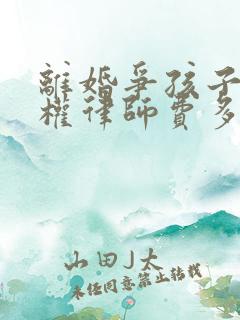 離婚爭孩子
權律師費多
山田J太
未經同意禁止轉載